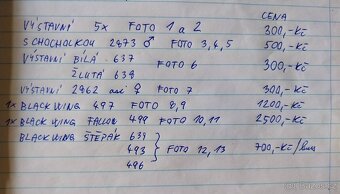 CENA
VÝSTAVNÍ 5x FOTO 1 a 2 300,-Kč
S CHOCHOLKOU 2973 ♂ FOTO 3,4,5 500,-Kč
VÝSTAVNÍ BÍLÁ 637 FOTO 6 300,-Kč
ŽLUTÁ 638
VÝSTAVNÍ 2962 asi ♀ FOTO 7 300,-Kč
1x BLACK WING 497 FOTO 8,9 1200,-Kč
1x BLACK WING FALLOW 499 FOTO 10,11 2500,-Kč
BLACK WING ŠTĚPÁK 639
493 FOTO 12,13 700,-Kč/kus
496